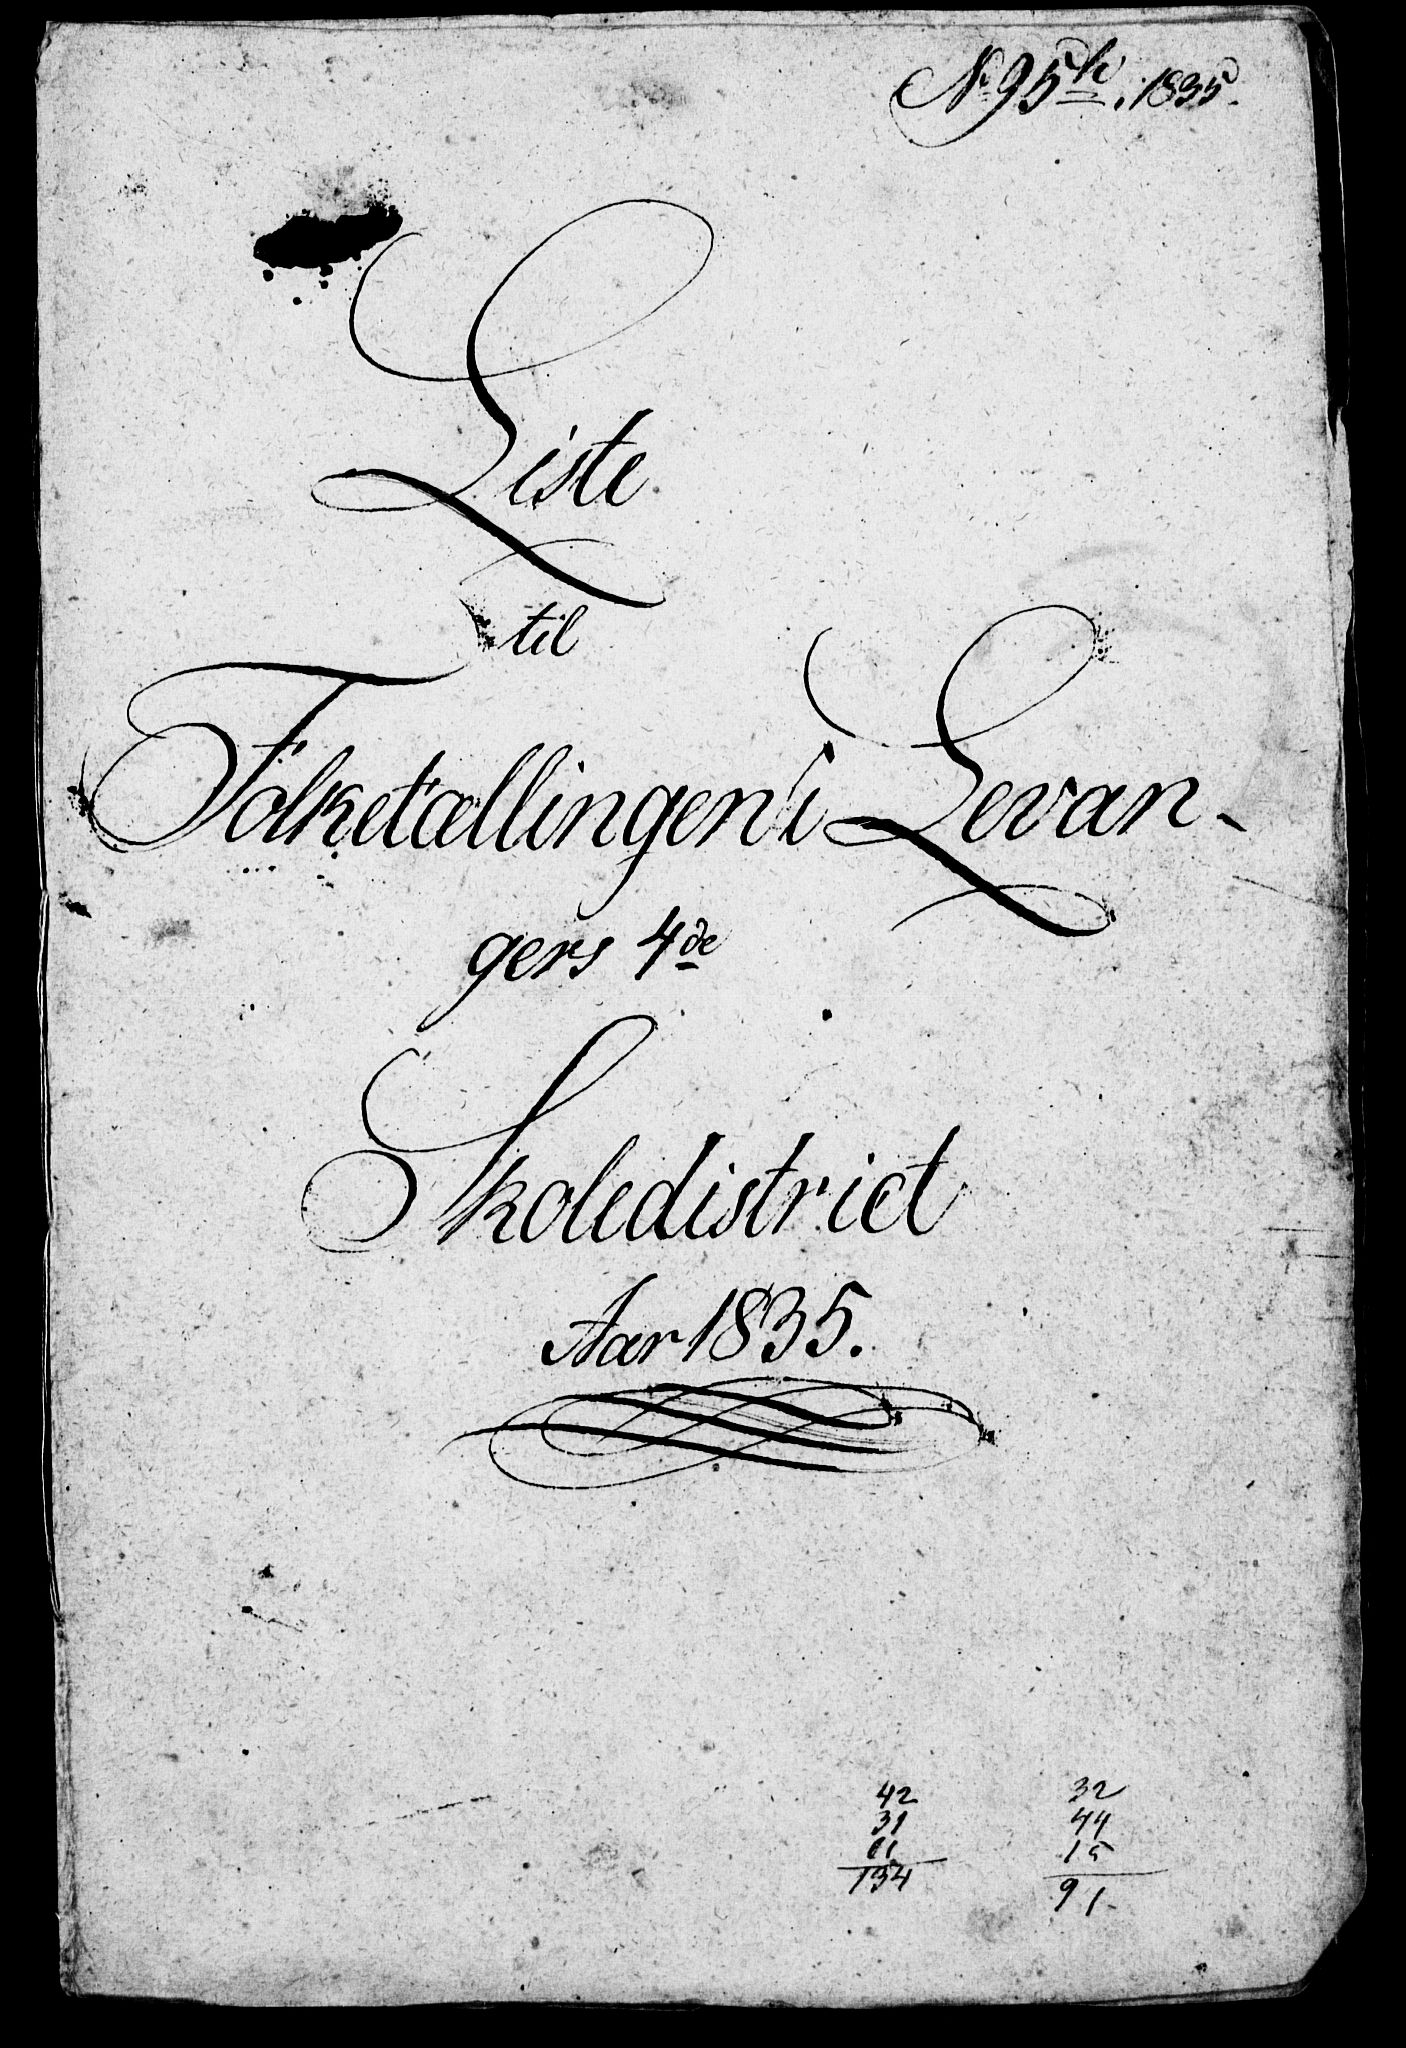 No 95h. 1835.
Liste
til
Folketællingen i Levan-
gers 4de
Skoledistrict
Aar 1835.
42 32
31 44
61 15
134 91.